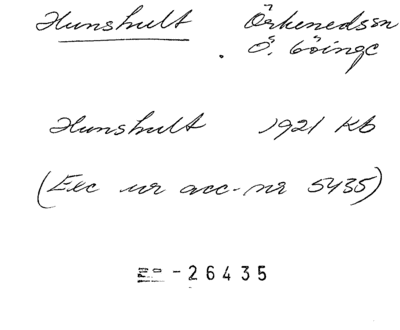 Hunshult Örkenedssn
Ö. Göinge
Hunshult 1921 Kb
(Exc ur acc-nr 5435)
-26435